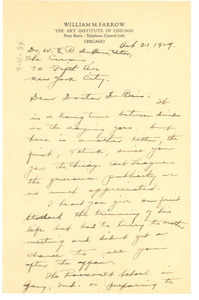 WILLIAM M. FARROW
THE ART INSTITUTE OF CHICAGO
CHICAGO
Oct 21, 1929
Dr. W. E. B. Du Bois, Editor,
The Crisis
70 Fifth Ave
New York City.
Dear Doctor Du Bois: It
is a long time between drinks
as the saying goes but
here is another letter, the
first, I think, since you
gave the Chicago Art League
the generous publicity
so much appreciated.
I heard you give
Stoddard the trimming of his
life but had to hurry to another
meeting and didn't get a
chance to see you
after the affair.
The Roosevelt School in
Gary, Ind. is preparing to